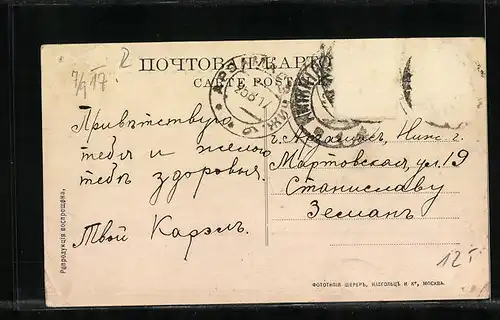 7/9 17
2
ПОЧТОВАЯ КАРТО
CARTE POST
Привѣтствую
тебя и желаю
тебѣ здоровья.
Твой Карэлъ.
г. Арзамасъ, Ниж. г.
Мартовская, ул. 19
Станиславу
Земанъ
12.-
Репродукція воспрещена.
ФОТОТИПІЯ ШЕРЕРЪ, НАБГОЛЬЦЪ И К°, МОСКВА.